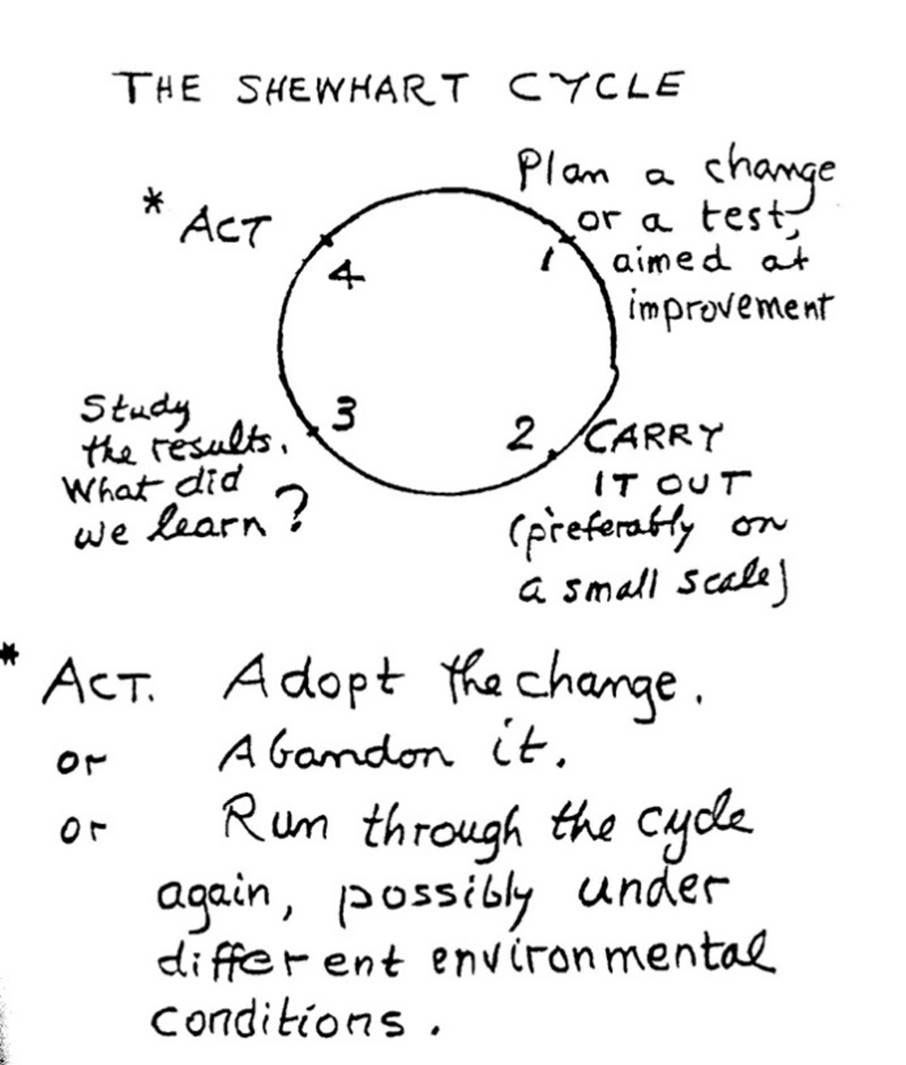 THE SHEWHART CYCLE
Plan a change
or a test,
aimed at
improvement
1
* ACT
4
Study
the results.
What did
we learn?
3
2
CARRY
IT OUT
(preferably on
a small scale)
* ACT. Adopt the change.
or Abandon it.
or Run through the cycle
again, possibly under
different environmental
conditions.